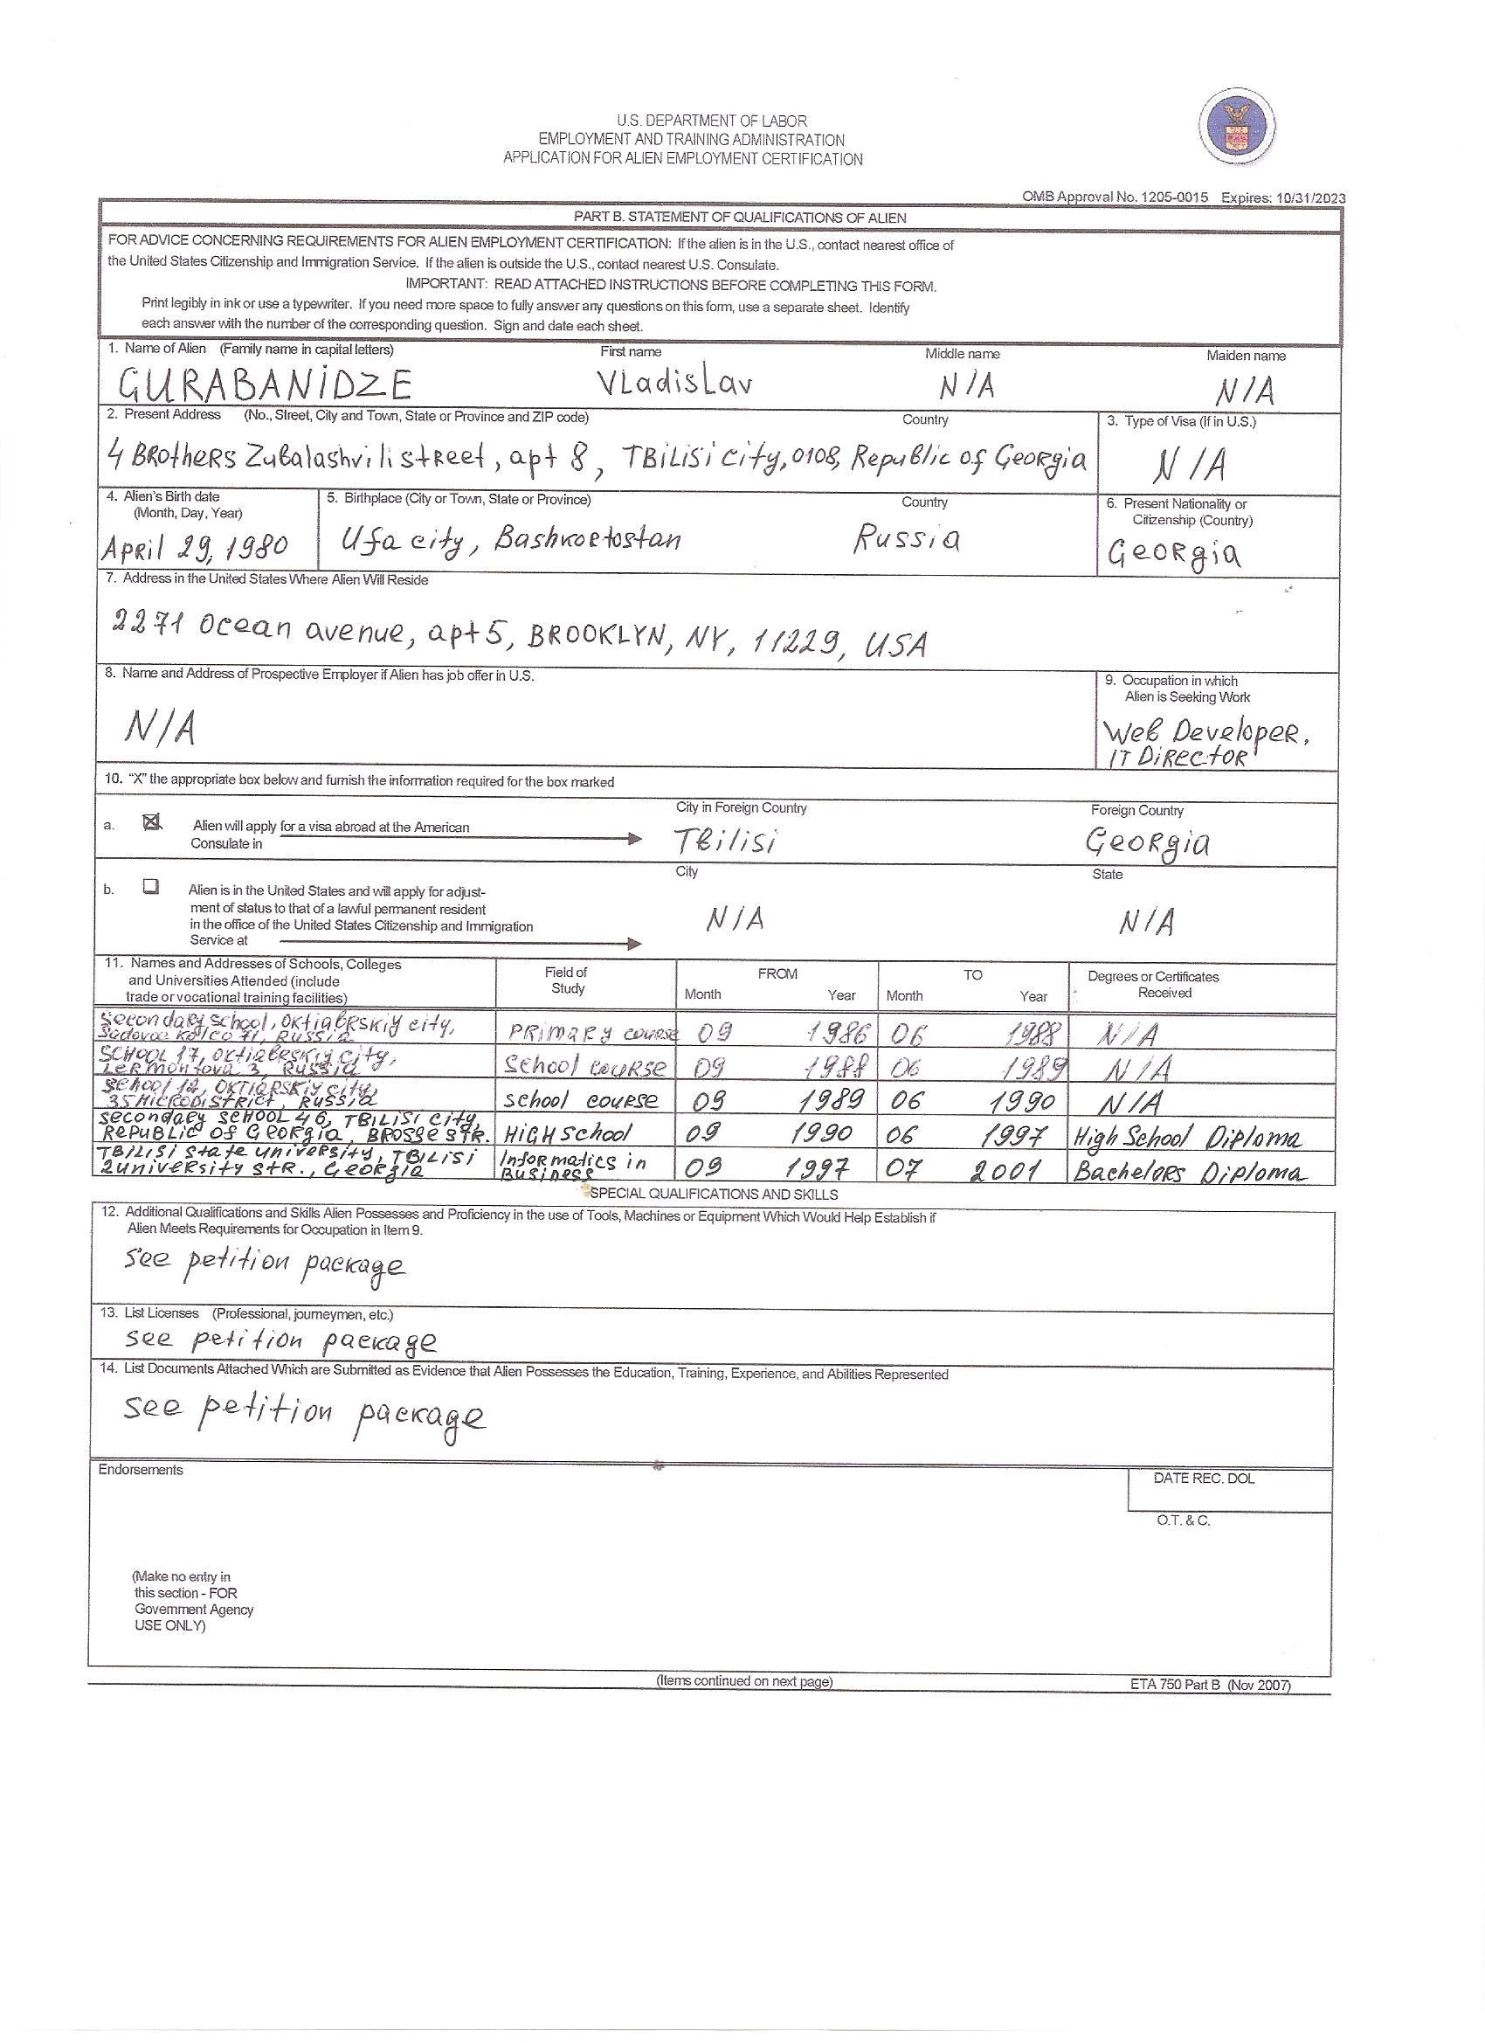 U.S. DEPARTMENT OF LABOR
EMPLOYMENT AND TRAINING ADMINISTRATION
APPLICATION FOR ALIEN EMPLOYMENT CERTIFICATION
OMB Approval No. 1205-0015 Expires: 10/31/2023
PART B. STATEMENT OF QUALIFICATIONS OF ALIEN
FOR ADVICE CONCERNING REQUIREMENTS FOR ALIEN EMPLOYMENT CERTIFICATION: If the alien is in the U.S., contact nearest office of
the United States Citizenship and Immigration Service. If the alien is outside the U.S., contact nearest U.S. Consulate.
IMPORTANT: READ ATTACHED INSTRUCTIONS BEFORE COMPLETING THIS FORM.
Print legibly in ink or use a typewriter. If you need more space to fully answer any questions on this form, use a separate sheet. Identify
each answer with the number of the corresponding question. Sign and date each sheet.
1. Name of Alien (Family name in capital letters) First name Middle name Maiden name
GURABANiDZE Vladislav N/A N/A
2. Present Address (No., Street, City and Town, State or Province and ZIP code) Country 3. Type of Visa (If in U.S.)
4 Brothers Zubalashvili street, apt 8, TBilisi city, 0108, Republic of Georgia N/A
4. Alien's Birth date 5. Birthplace (City or Town, State or Province) Country 6. Present Nationality or
(Month, Day, Year) Citizenship (Country)
April 29, 1980 Ufa city, Bashkortostan Russia Georgia
7. Address in the United States Where Alien Will Reside
2271 Ocean avenue, apt 5, BROOKLYN, NY, 11229, USA
8. Name and Address of Prospective Employer if Alien has job offer in U.S. 9. Occupation in which
Alien is Seeking Work
N/A Web Developer,
IT Director
10. "X" the appropriate box below and furnish the information required for the box marked
City in Foreign Country Foreign Country
a. Alien will apply for a visa abroad at the American
Consulate in Tbilisi Georgia
City State
b. Alien is in the United States and will apply for adjust-
ment of status to that of a lawful permanent resident
in the office of the United States Citizenship and Immigration
Service at N/A N/A
11. Names and Addresses of Schools, Colleges
and Universities Attended (include
trade or vocational training facilities) Field of
Study FROM
Month Year TO
Month Year Degrees or Certificates
Received
Secondary school, Oktiabrskiy city,
Sadovoe Kolco 71, Russia Primary course 09 1986 06 1988 N/A
SCHOOL 17, Oktiabrskiy city,
Lermontova 3, Russia School course 09 1988 06 1989 N/A
School 12, Oktiabrskiy city,
35 Microdistrict, Russia school course 09 1989 06 1990 N/A
secondary school 46, TBilisi city,
Republic of Georgia, Brosse str. High School 09 1990 06 1997 High School Diploma
TBilisi State University, TBilisi
2 university str., Georgia Informatics in
Business 09 1997 07 2001 Bachelors Diploma
SPECIAL QUALIFICATIONS AND SKILLS
12. Additional Qualifications and Skills Alien Possesses and Proficiency in the use of Tools, Machines or Equipment Which Would Help Establish if
Alien Meets Requirements for Occupation in Item 9.
See petition package
13. List Licenses (Professional, journeymen, etc.)
see petition package
14. List Documents Attached Which are Submitted as Evidence that Alien Possesses the Education, Training, Experience, and Abilities Represented
see petition package
Endorsements
DATE REC. DOL
O.T. & C.
(Make no entry in
this section - FOR
Government Agency
USE ONLY)
(Items continued on next page)
ETA 750 Part B (Nov 2007)